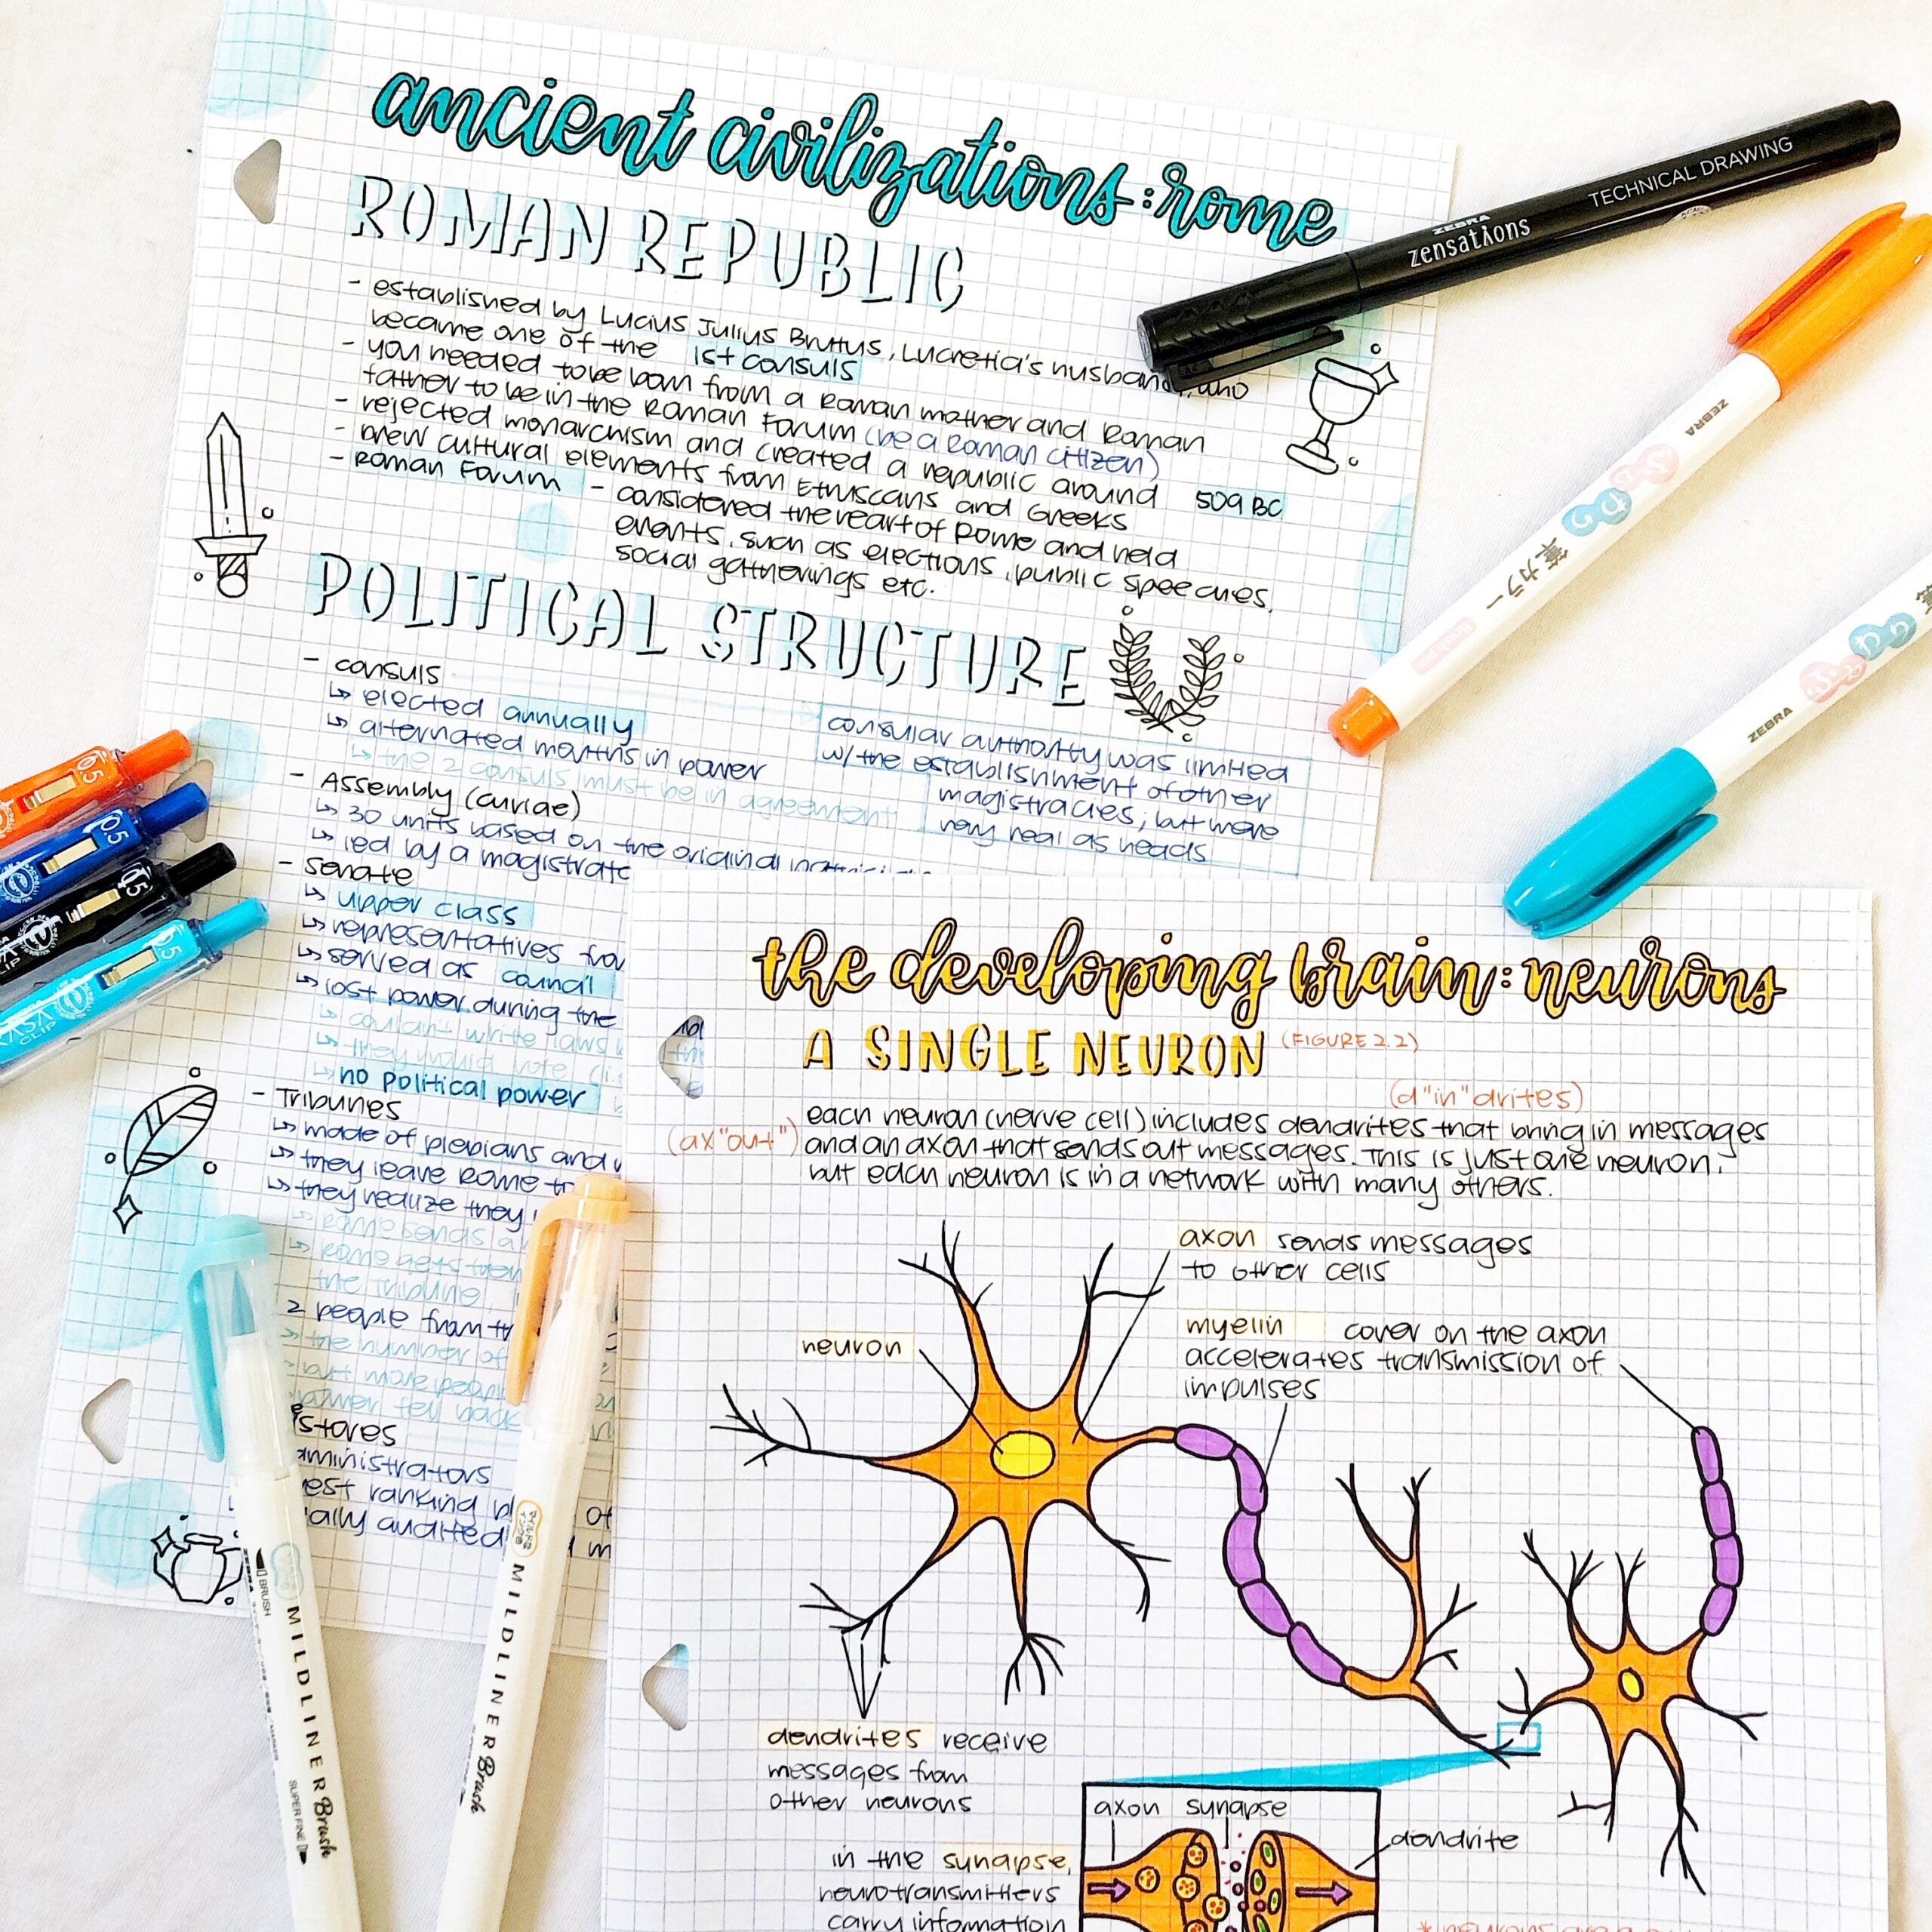 ancient civilizations: rome
ROMAN REPUBLIC
- established by Lucius Julius Bruttus, Lucretia's husband, who
became one of the 1st consuls
- you needed to be born from a Roman mother and Roman
father to be in the Roman Forum (be a Roman citizen)
- rejected monarchism and created a republic around 509 BC
- drew cultural elements from Etruscans and Greeks
- Roman Forum - considered the heart of Rome and held
events, such as elections, public speeches,
social gatherings etc.
POLITICAL STRUCTURE
- consuls
↳ elected annually
↳ alternated months in power
↳ the 2 consuls must be in agreement
consular authority was limited
w/ the establishment of other
magistracies, but were
very real as heads
- Assembly (curiae)
↳ 30 units based on the original
↳ led by a magistrate
- senate
↳ upper class
↳ representatives
↳ served as council
↳ lost power during the
↳ couldn't write laws
↳ they would vote
↳ no political power
- Tribunes
↳ made of plebians and
↳ they leave Rome
↳ they realize they
↳ Rome sends a
↳ Rome gets
the tribune,
2 people from
the number of
but more
administrators
ranking
audited
the developing brain: neurons
A SINGLE NEURON (FIGURE 2.2)
(d"in"drites)
each neuron (nerve cell) includes dendrites that bring in messages
(ax"out") and an axon that sends out messages. This is just one neuron,
but each neuron is in a network with many others.
axon sends messages
to other cells
neuron
myelin cover on the axon
accelerates transmission of
impulses
dendrites receive
messages from
other neurons
axon synapse
dendrite
in the synapse,
neurotransmitters
carry information
ZEBRA
zensations
TECHNICAL DRAWING
ZEBRA
筆カラー
ZEBRA
0.5
0.5
0.5
CLIP
0.5
CLIP
BRUSH
MILDLINER Brush
SUPER FINE
MILDLINER Brush